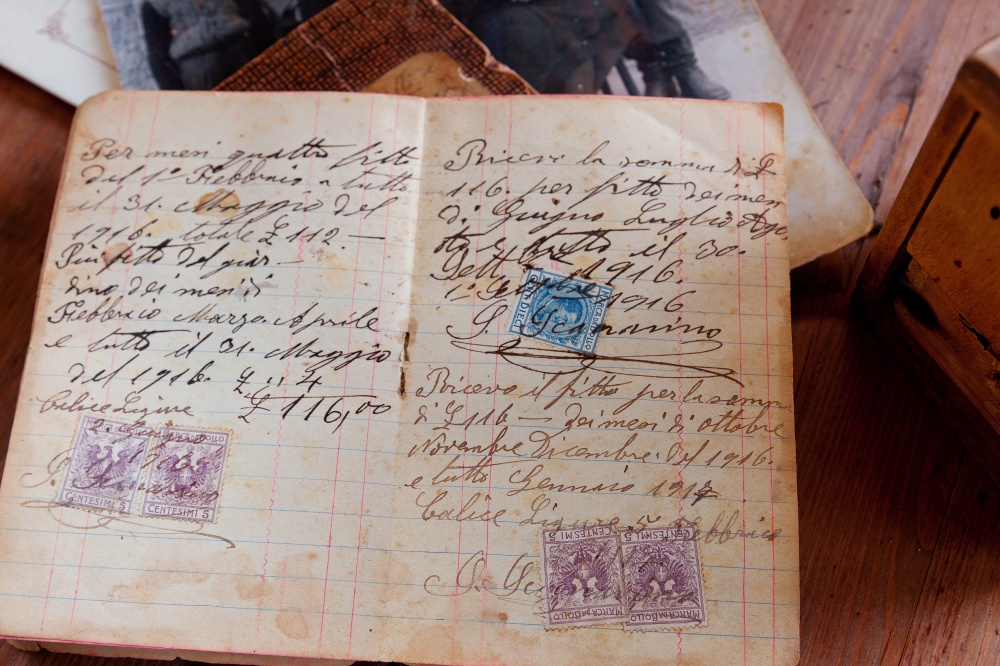 Per mesi quattro fitto
del 1° Febbraio a tutto
il 31. Maggio del
1916. totale £ 112 —
Piu fitto del giar-
dino dei mesi di
Febbraio Marzo. Aprile
e tutto il 31. Maggio
del 1916. £ 4
Calice Ligure £ 116,00
MARCA DA BOLLO
CENTESIMI 5 CENTESIMI 5
Ricevo la somma di £
116. per fitto dei mesi
di Giugno Luglio Ago
sto e tutto il 30.
Settembre 1916.
1° 1916
CENT. DIECI MARCA DA BOLLO
Ricevo il fitto per la somma
di £ 116 — dei mesi di ottobre
Novembre Dicembre del 1916.
e tutto Gennaio 1917
Calice Ligure 5 Febbraio
CENTESIMI 5 CENTESIMI 5
MARCA DA BOLLO MARCA DA BOLLO